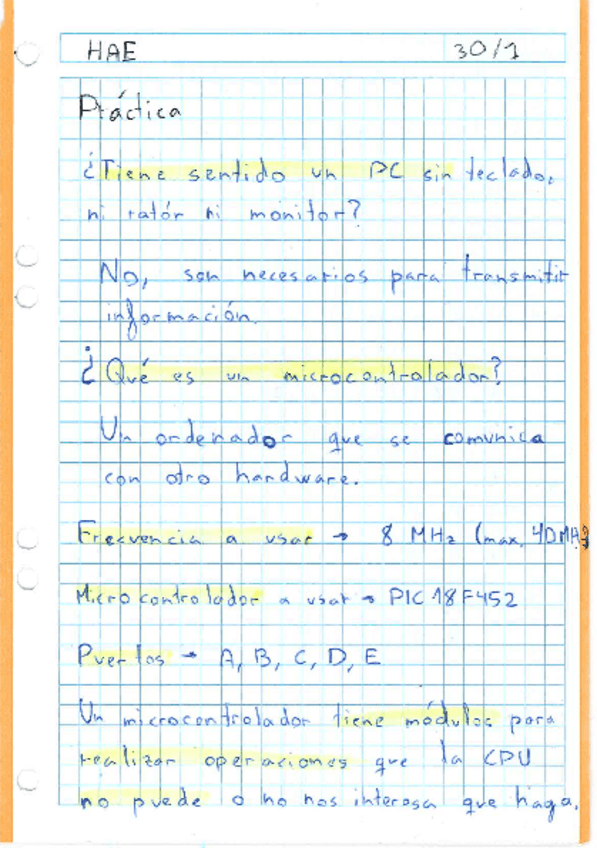 HAE 30/1
Práctica
¿Tiene sentido un PC sin teclado,
ni ratón ni monitor?
No, son necesarios para transmitir
información.
¿Qué es un microcontrolador?
Un ordenador que se comunica
con otro hardware.
Frecuencia a usar → 8 MHz (max. 40MHz)
Microcontrolador a usar → PIC18F452
Puertos → A, B, C, D, E
Un microcontrolador tiene módulos para
realizar operaciones que la CPU
no puede o no nos interesa que haga.